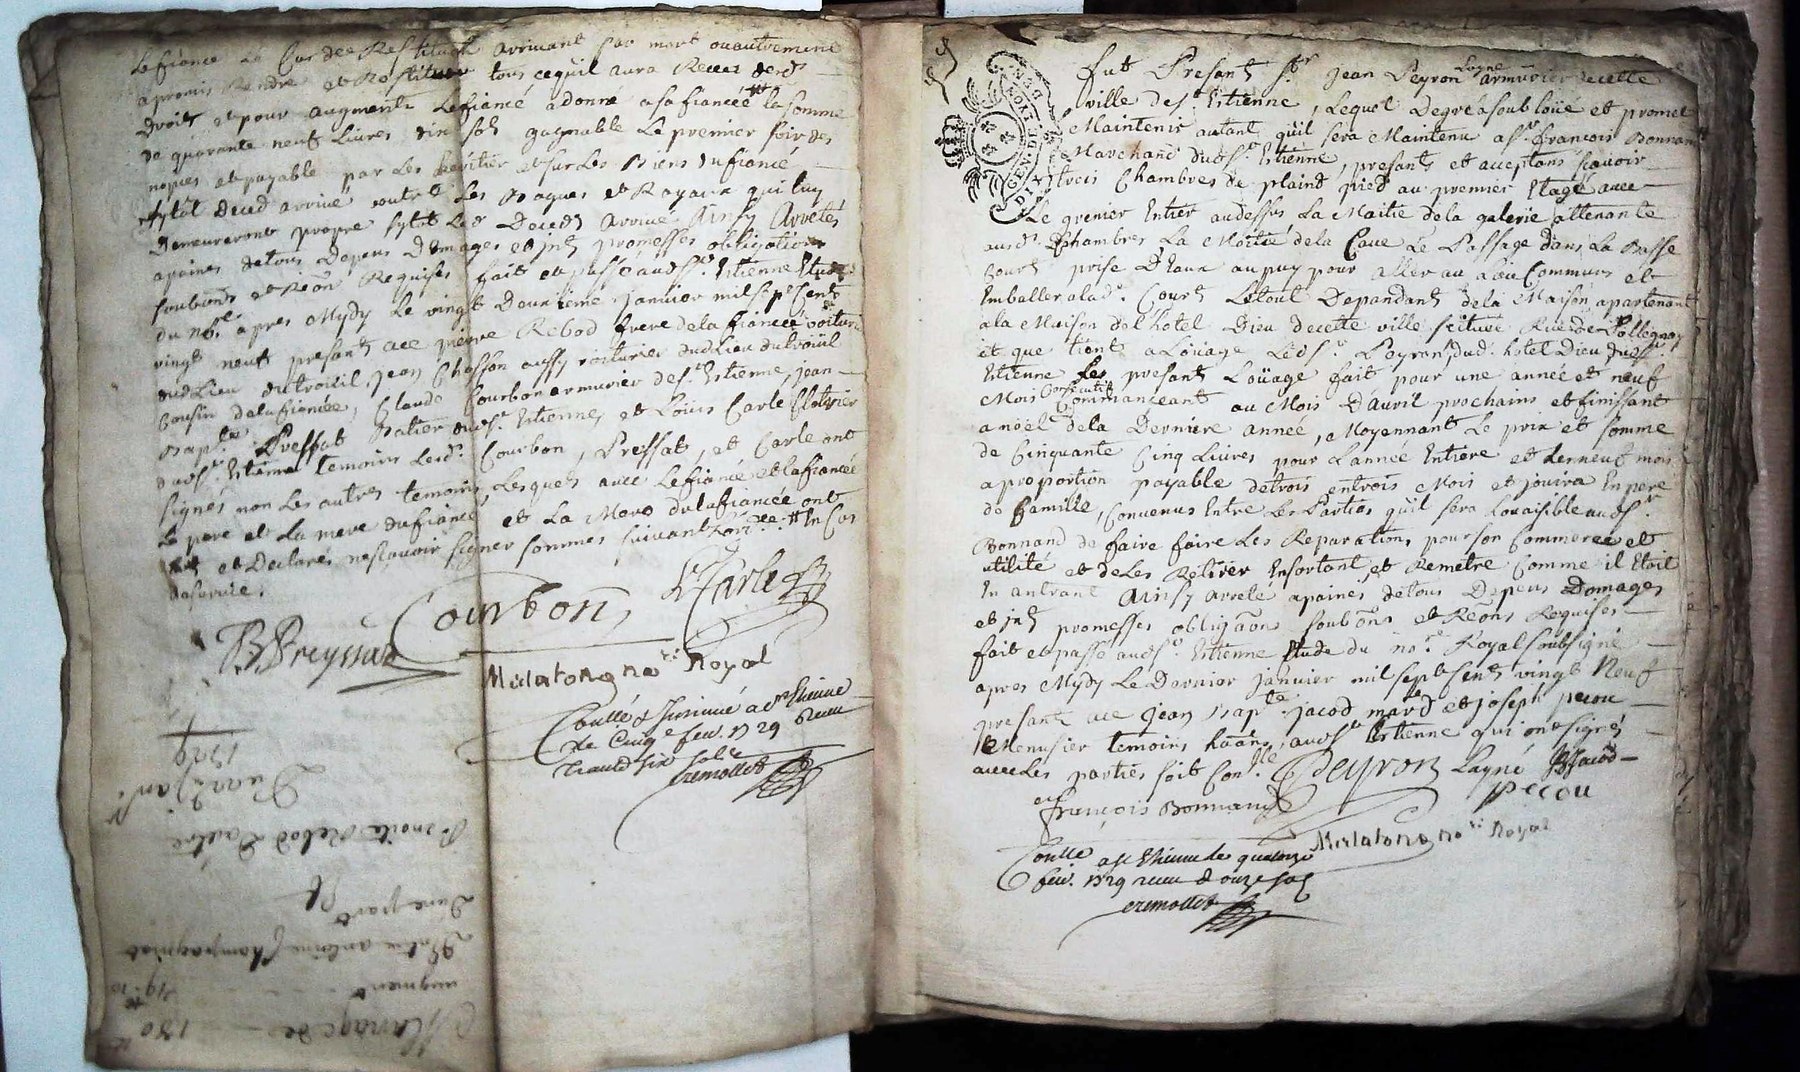 Le fiancé Le Cas de Restitution arrivant par mort ou autrement
a promis Rendre et Restituer tous ce quil aura Receu desd.
Droits et pour augment Le fiancé a donné a sa fiancée la somme
de quarante neuf Livres dix sols gagnable Le premier soir des
nopces et payable par Les heritiers et sur Les Biens du fiancé
sytôt Deced arrivé outre Les Bagues et Joyaux qui luy
Demeureront propre sytôt Led Deceds arrivé Ainsy Arretés
apaines de tous Depens Domages et jnts promesses obligations
soubons et Réons Requises fait et passé aud St. Estienne Etude
du nore. apres Mydy Le vingt Deuxieme janvier mil sept Cent
vingt neuf presant ace pierre Rebod frere de la fiancée voiturier
dud Lieu du treüil, jean Chasson aussy voiturier dud Lieu du treüil
Cousin de la fiancée, Claude Courbon armurier de St. Estienne, jean
Bapte. Pressat Patier dud St. Estienne, et Loüis Carle
dud St. Estienne temoins Lesd. Courbon, Pressat, et Carle ont
signés non Les autres temoins, Lesquels avec Le fiancé et la fiancée
Le pere et La mere du fiancé et La Mere de la fiancée ont
et Declarés ne sçavoir signer sommés suivant Lordce. # En Cas
de survie.
B Preyssat Courbon, L Carle
Malatong no.re Royal
Conllé & Insinué a St Etienne
Le Cinqe feu. 1729 Receu
trante six sols
cremollet
1729
Du 22 jan.
Benoite Rebod Dautre
Et
Dune part
antoine Champagnat
augment
49-10
Mariage de 150
fut Presant Sr. jean Peyron Layné armurier de cette
ville de St. Estienne, Lequel De gré a soub loüé et promet
Maintenir autant quil sera Maintenu a Sr. françois Bonnand
Marchand dud St. Estienne, presant et acceptant sçavoir
trois Chambres de plaind pied au premier Etage avec
Le grenier Entier au dessus La Moitié de la galerie attenante
ausd. Chambres La Moitié de la Cave Le Passage dans La Basse
Court prise D'Eaux au puy pour aller au Lieu Communs et
Emballer a lad. Court Letout Dependant de la Maison apartenant
a la Maison de l'hotel Dieu de cette ville scituée Rüe de Pollegnay
et que tient a Loüage Led Sr. Peyron, dud. hotel Dieu dud St.
Estienne Le presant Loüage fait pour une année et neuf
Mois Consecutifs Commançeant au Mois D'avril prochains et finissant
a noël de la Derniere année, Moyennant Le prix et somme
de Cinquante Cinq Livres pour L'année Entiere et Les neuf mois
a proportion payable de trois entrois Mois et jouira En pere
de famille, Convenus Entre Les Parties quil sera Loisible aud Sr.
Bonnand de faire faire Les Reparations pour son Commerce et
utilité et de Les Retirer En sortant et Remetre Comme il Etoit
En antrant Ainsy Arreté apaines de tous Depens Domages
et jnts promesses obligãons soubõns et Réõns Requises
fait et passé aud St. Estienne Etude du nore. Royal soubsigné
apres Mydy Le Dernier janvier mil sept Cent vingt Neuf
presants ace jean Bapte. jacod mard et joseph pecou
Menusier temoins haãns. aud St Estienne qui ont signés
avec Les parties soit Conllé. Peyron Layné BJacod
pecou
françois Bonnand
Malatong no.re Royal
Conllé a St Etienne le quatorze
feu. 1729 receu douze sols
cremollet
GEN. DE LYON